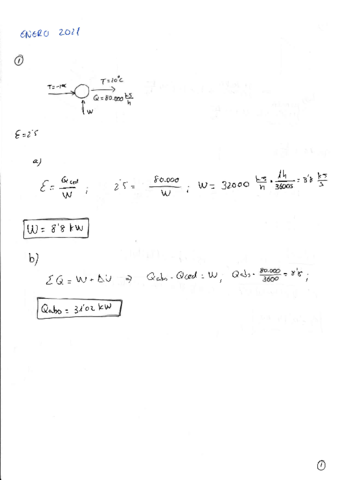 ENERO 2011
①
T=-1ºC T=20ºC
Q=80.000 kJ/h
W
ε=2'5
a)
ε = Qced/W ; 2'5 = 80.000/W ; W = 32000 kJ/h · 1h/3600s = 8'8 kJ/s
W = 8'8 kW
b)
ΣQ = W + ΔU ⇒ Qabs - Qced = W, Qabs - 80.000/3600 = 8'8 ;
Qabs = 31'02 kW
①